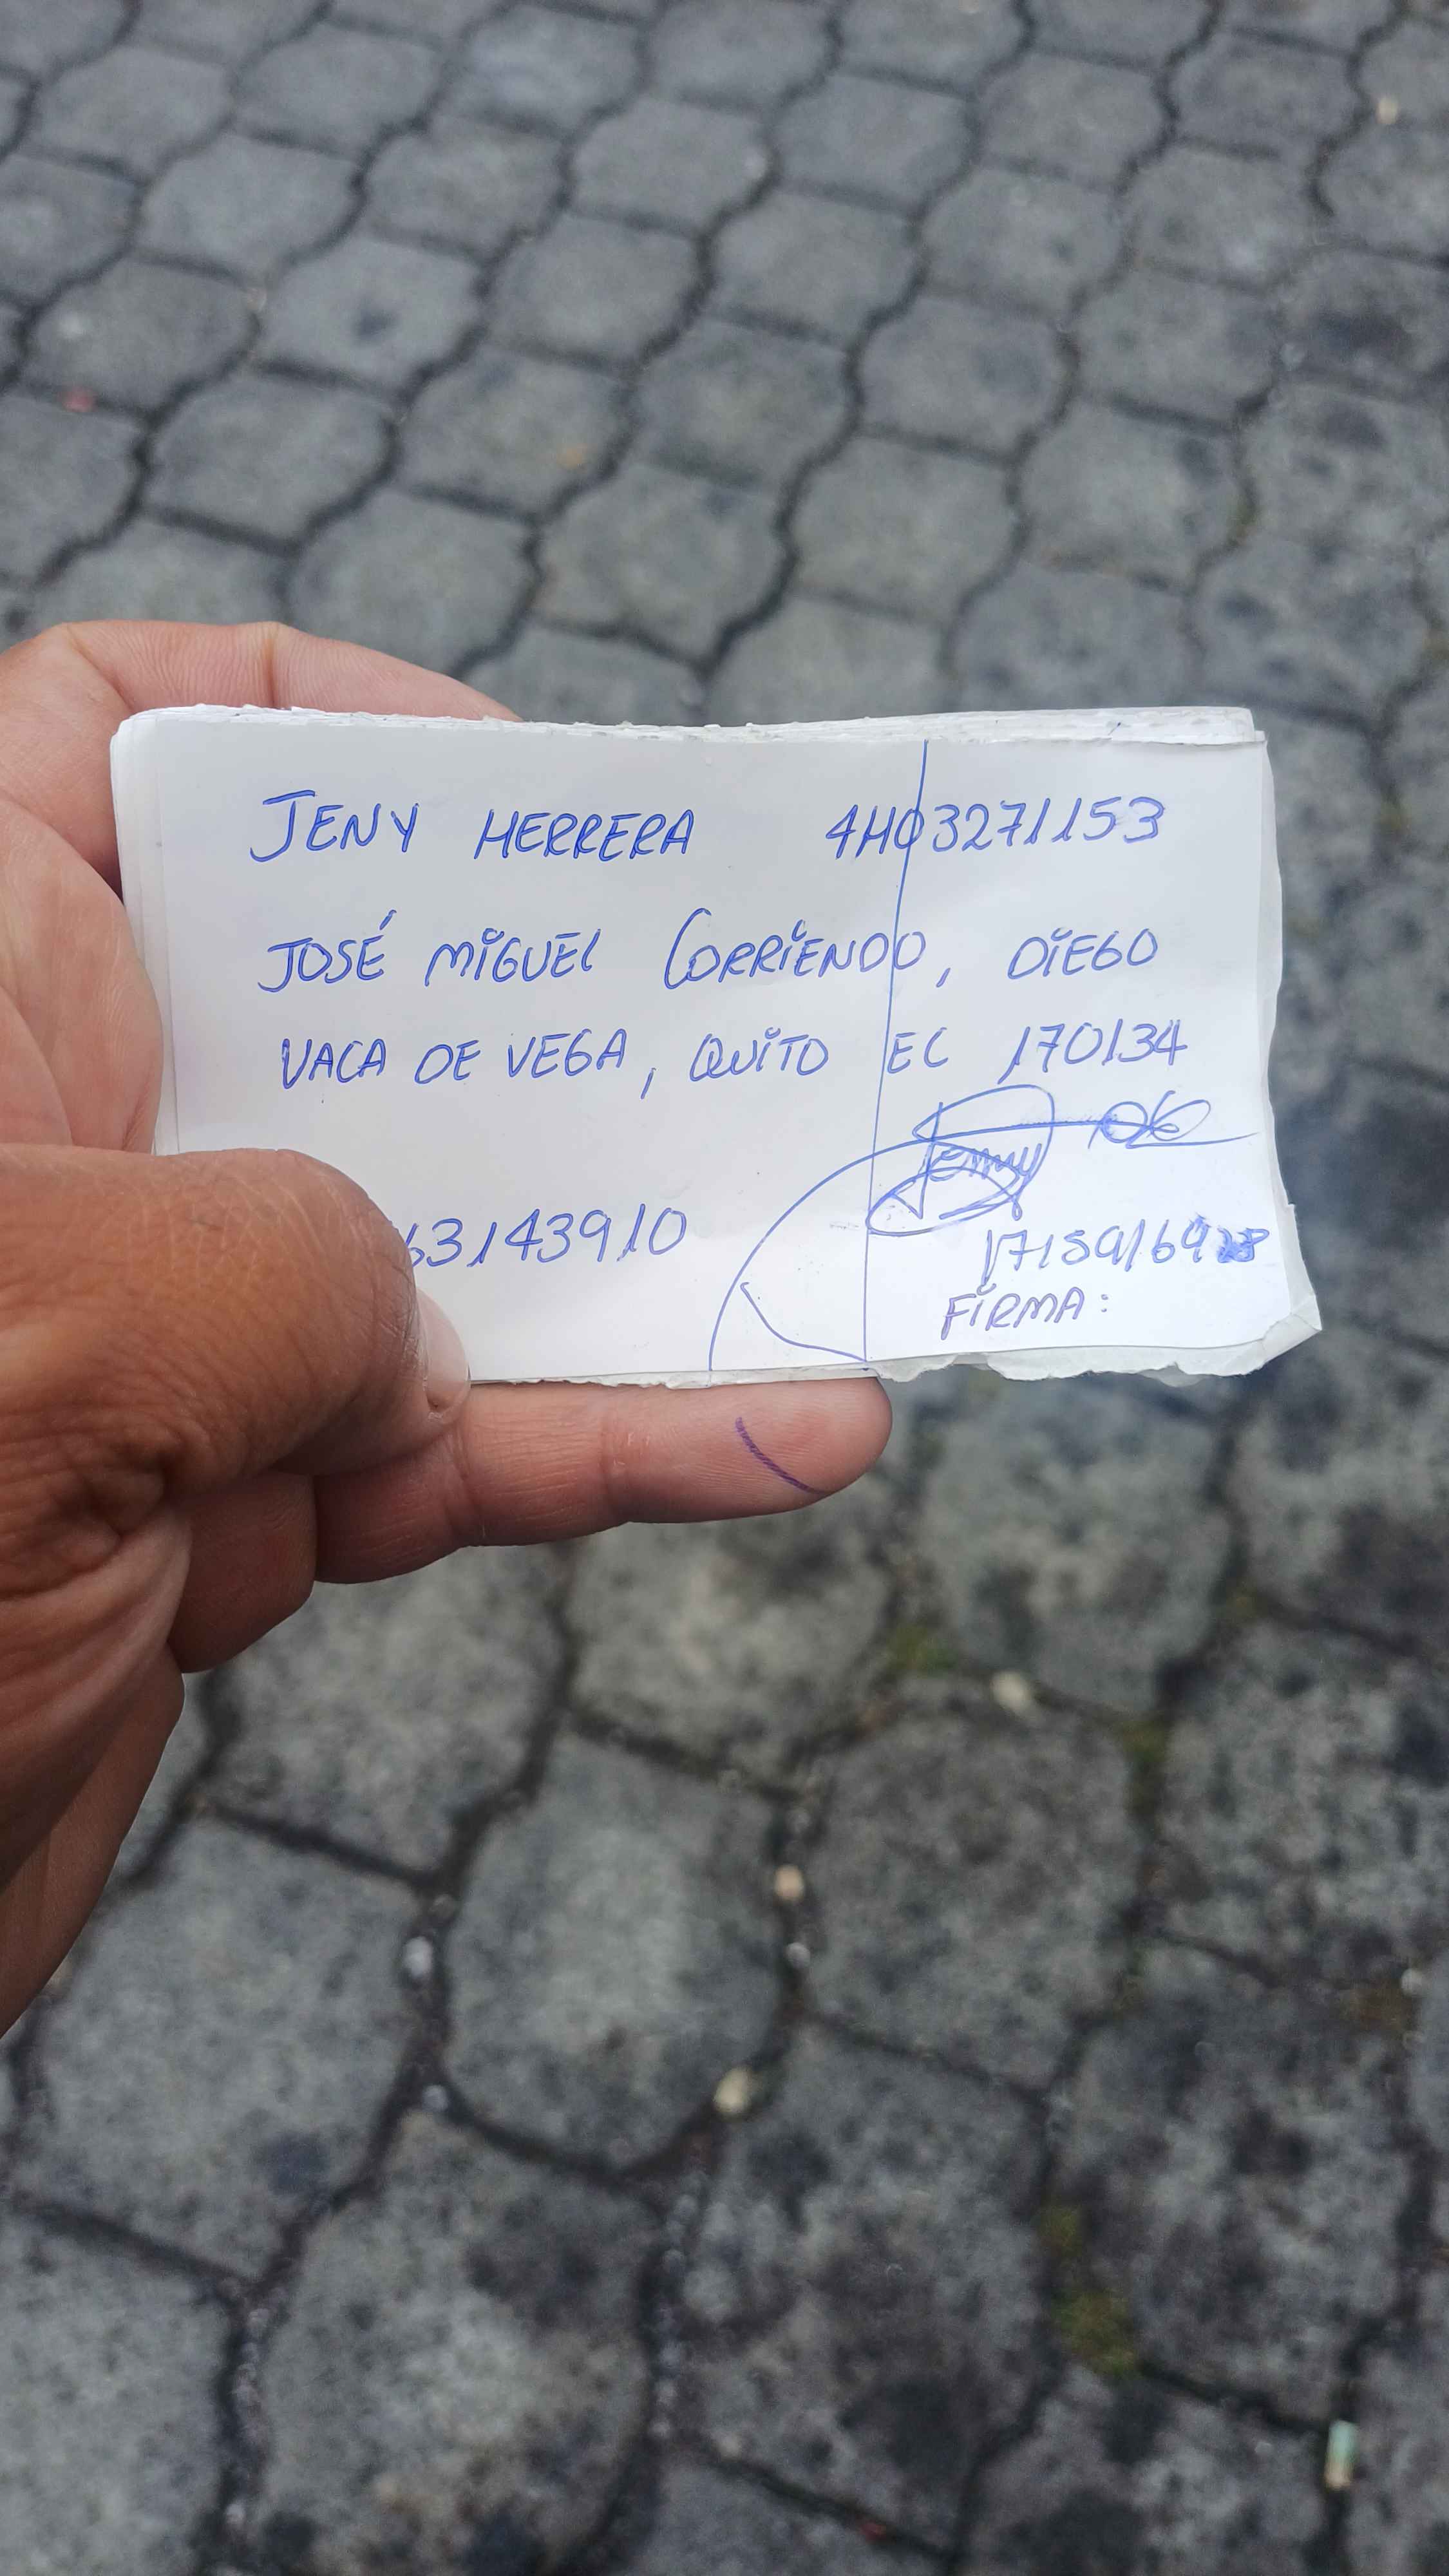 JENY HERRERA 4H03271153
JOSÉ MIGUEL CORRIENDO, DIEGO
VACA DE VEGA, QUITO EC 170134
Jenny
63143910
FIRMA: